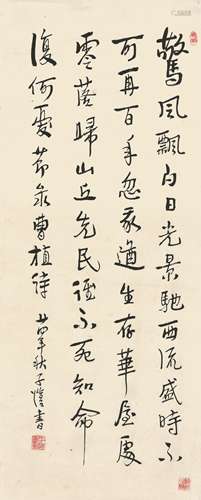 驚風飄白日光景馳西流盛時不
可再百年忽我遒生存華屋處
零落歸山丘先民誰不死知命
復何憂 節录曹植诗 廿四年秋子愷書